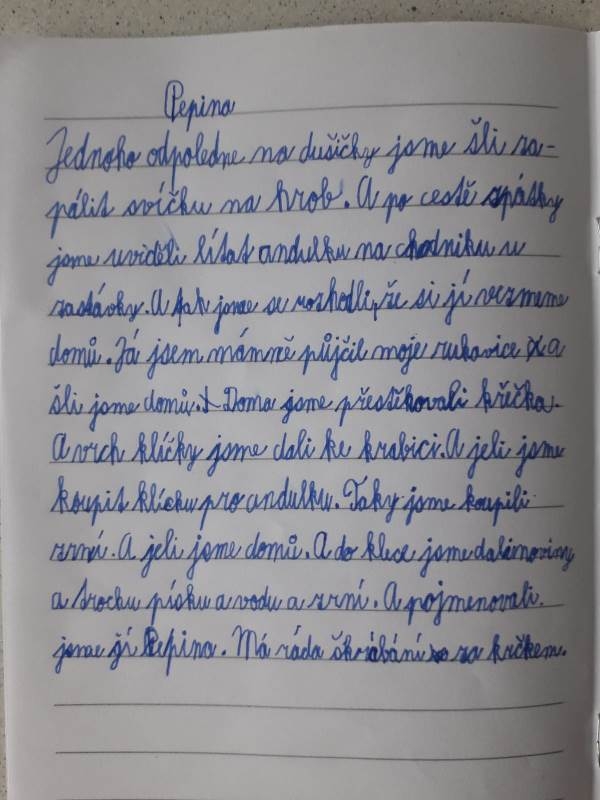 Pepina
Jednoho odpoledne na dušičky jsme šli za-
pálit svíčku na hrob. A po cestě zpátky
jsme uviděli lítat andulku na chodniku u
zastávky. A tak jsme se rozhodli, že si jí vezmeme
domů. Já jsem mámně půjčil moje rukavice a
šli jsme domů. Doma jsme přestěkovali křečka.
A vrch klíčky jsme dali ke krabici. A jeli jsme
koupit klícku pro andulku. Taky jsme koupili
zrní. A jeli jsme domů. A do klece jsme dali noviny
a trochu písku a vodu a zrní. A pojmenovali
jsme jí Pepina. Má ráda škrábání za krčkem.